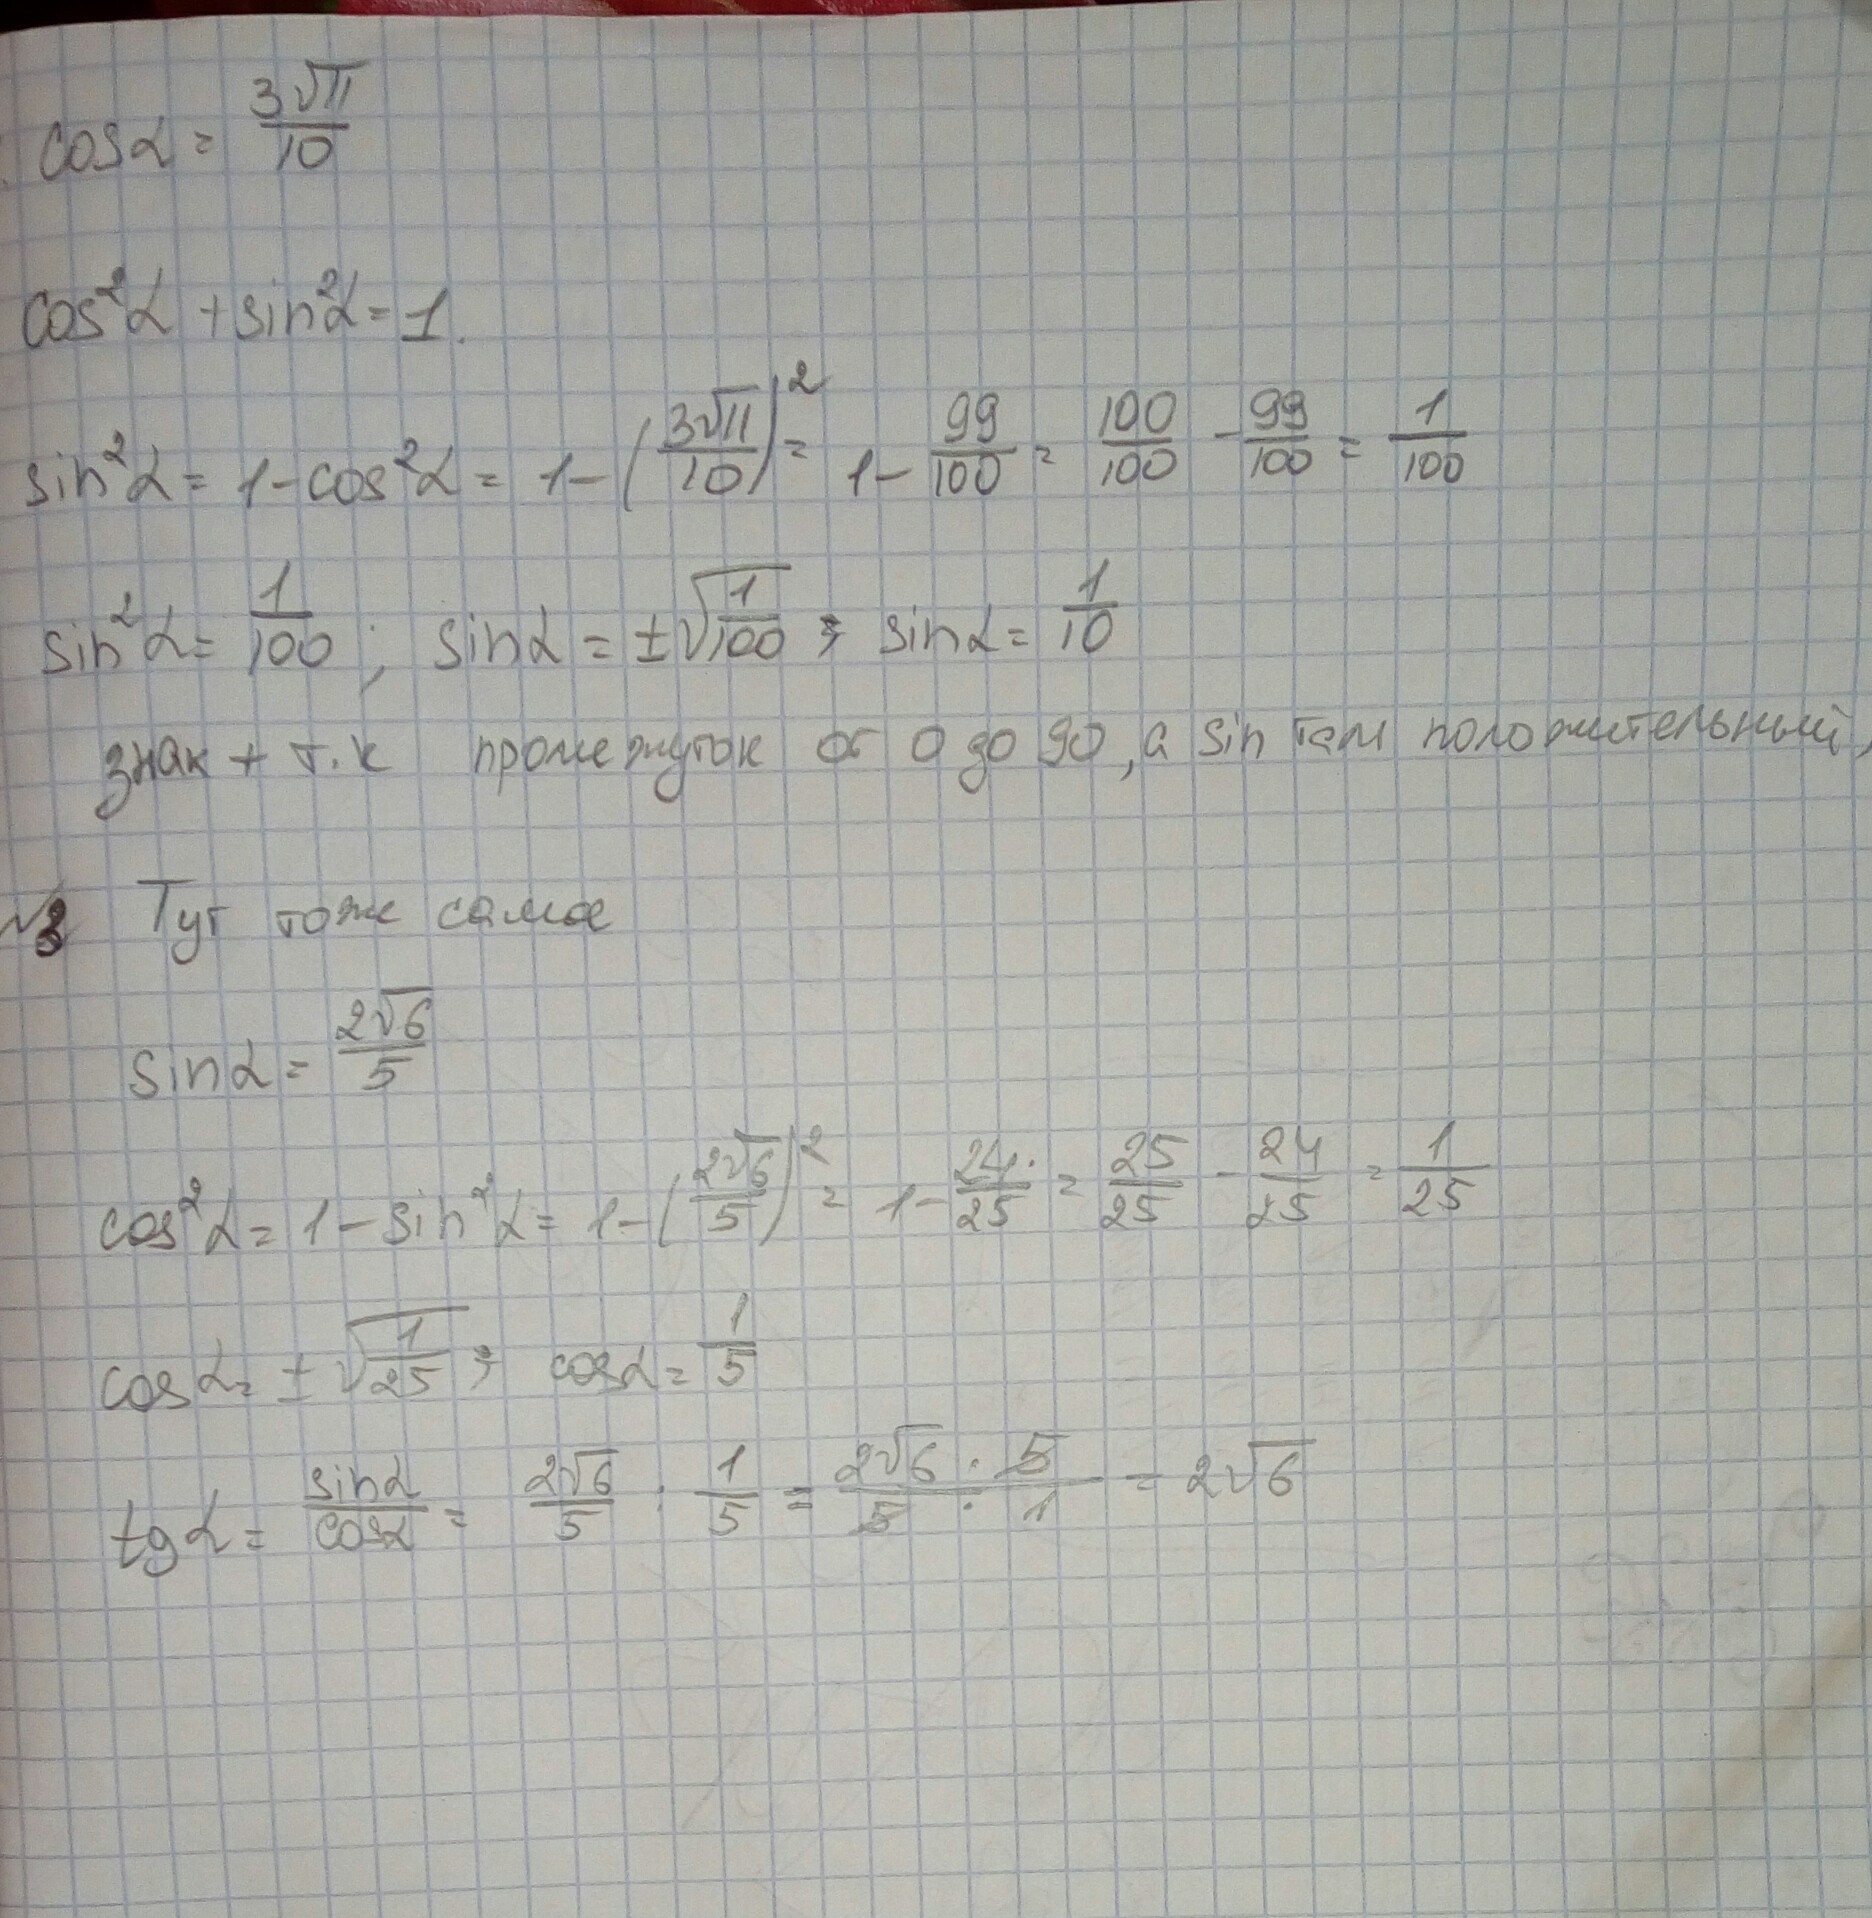 cosα = 3√11/10
cos²α + sin²α = 1.
sin²α = 1 - cos²α = 1 - (3√11/10)² = 1 - 99/100 = 100/100 - 99/100 = 1/100
sin²α = 1/100 ; sinα = ±√1/100 ; sinα = 1/10
знак + т.к промежуток от 0 до 90, а sin там положительный,
№3 Тут тоже самое
sinα = 2√6/5
cos²α = 1 - sin²α = 1 - (2√6/5)² = 1 - 24/25 = 25/25 - 24/25 = 1/25
cosα = ±√1/25 ; cosα = 1/5
tgα = sinα/cosα = 2√6/5 : 1/5 = 2√6 · 5/5 · 1 = 2√6